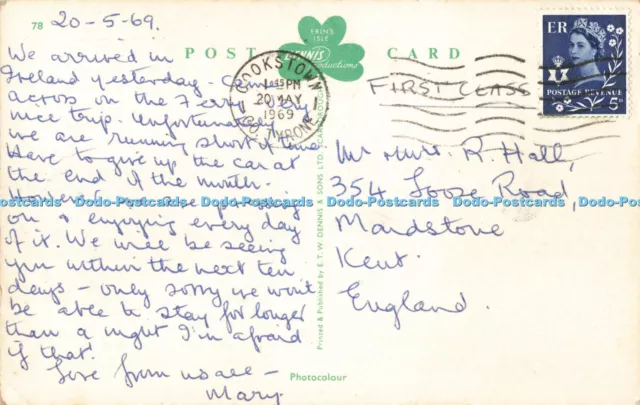 78 20-5-69.
We arrived in
Ireland yesterday - came
across on the Ferry - very
nice trip. Unfortunately
we are running short of time
Have to give up the car at
the end of the month.
However we are pressing
on & enjoying every day
of it. We will be seeing
you within the next ten
days - only sorry we won't
be able to stay for longer
than a night I'm afraid
if that!
Love from us all -
Mary
ERIN'S
ISLE
DENNIS
Productions
POST CARD
COOKSTOWN
1 45 PM
20 MAY
1969
CO. TYRONE
FIRST CLASS
E R
POSTAGE REVENUE
5D
Mr Mrs R. Hall,
354 Loose Road,
Maidstone
Kent.
England.
Printed & Published by E. T. W. DENNIS & SONS LTD., SCARBOROUGH
Photocolour
Dodo-Postcards Dodo-Postcards Dodo-Postcards Dodo-Postcards Dodo-Postcards